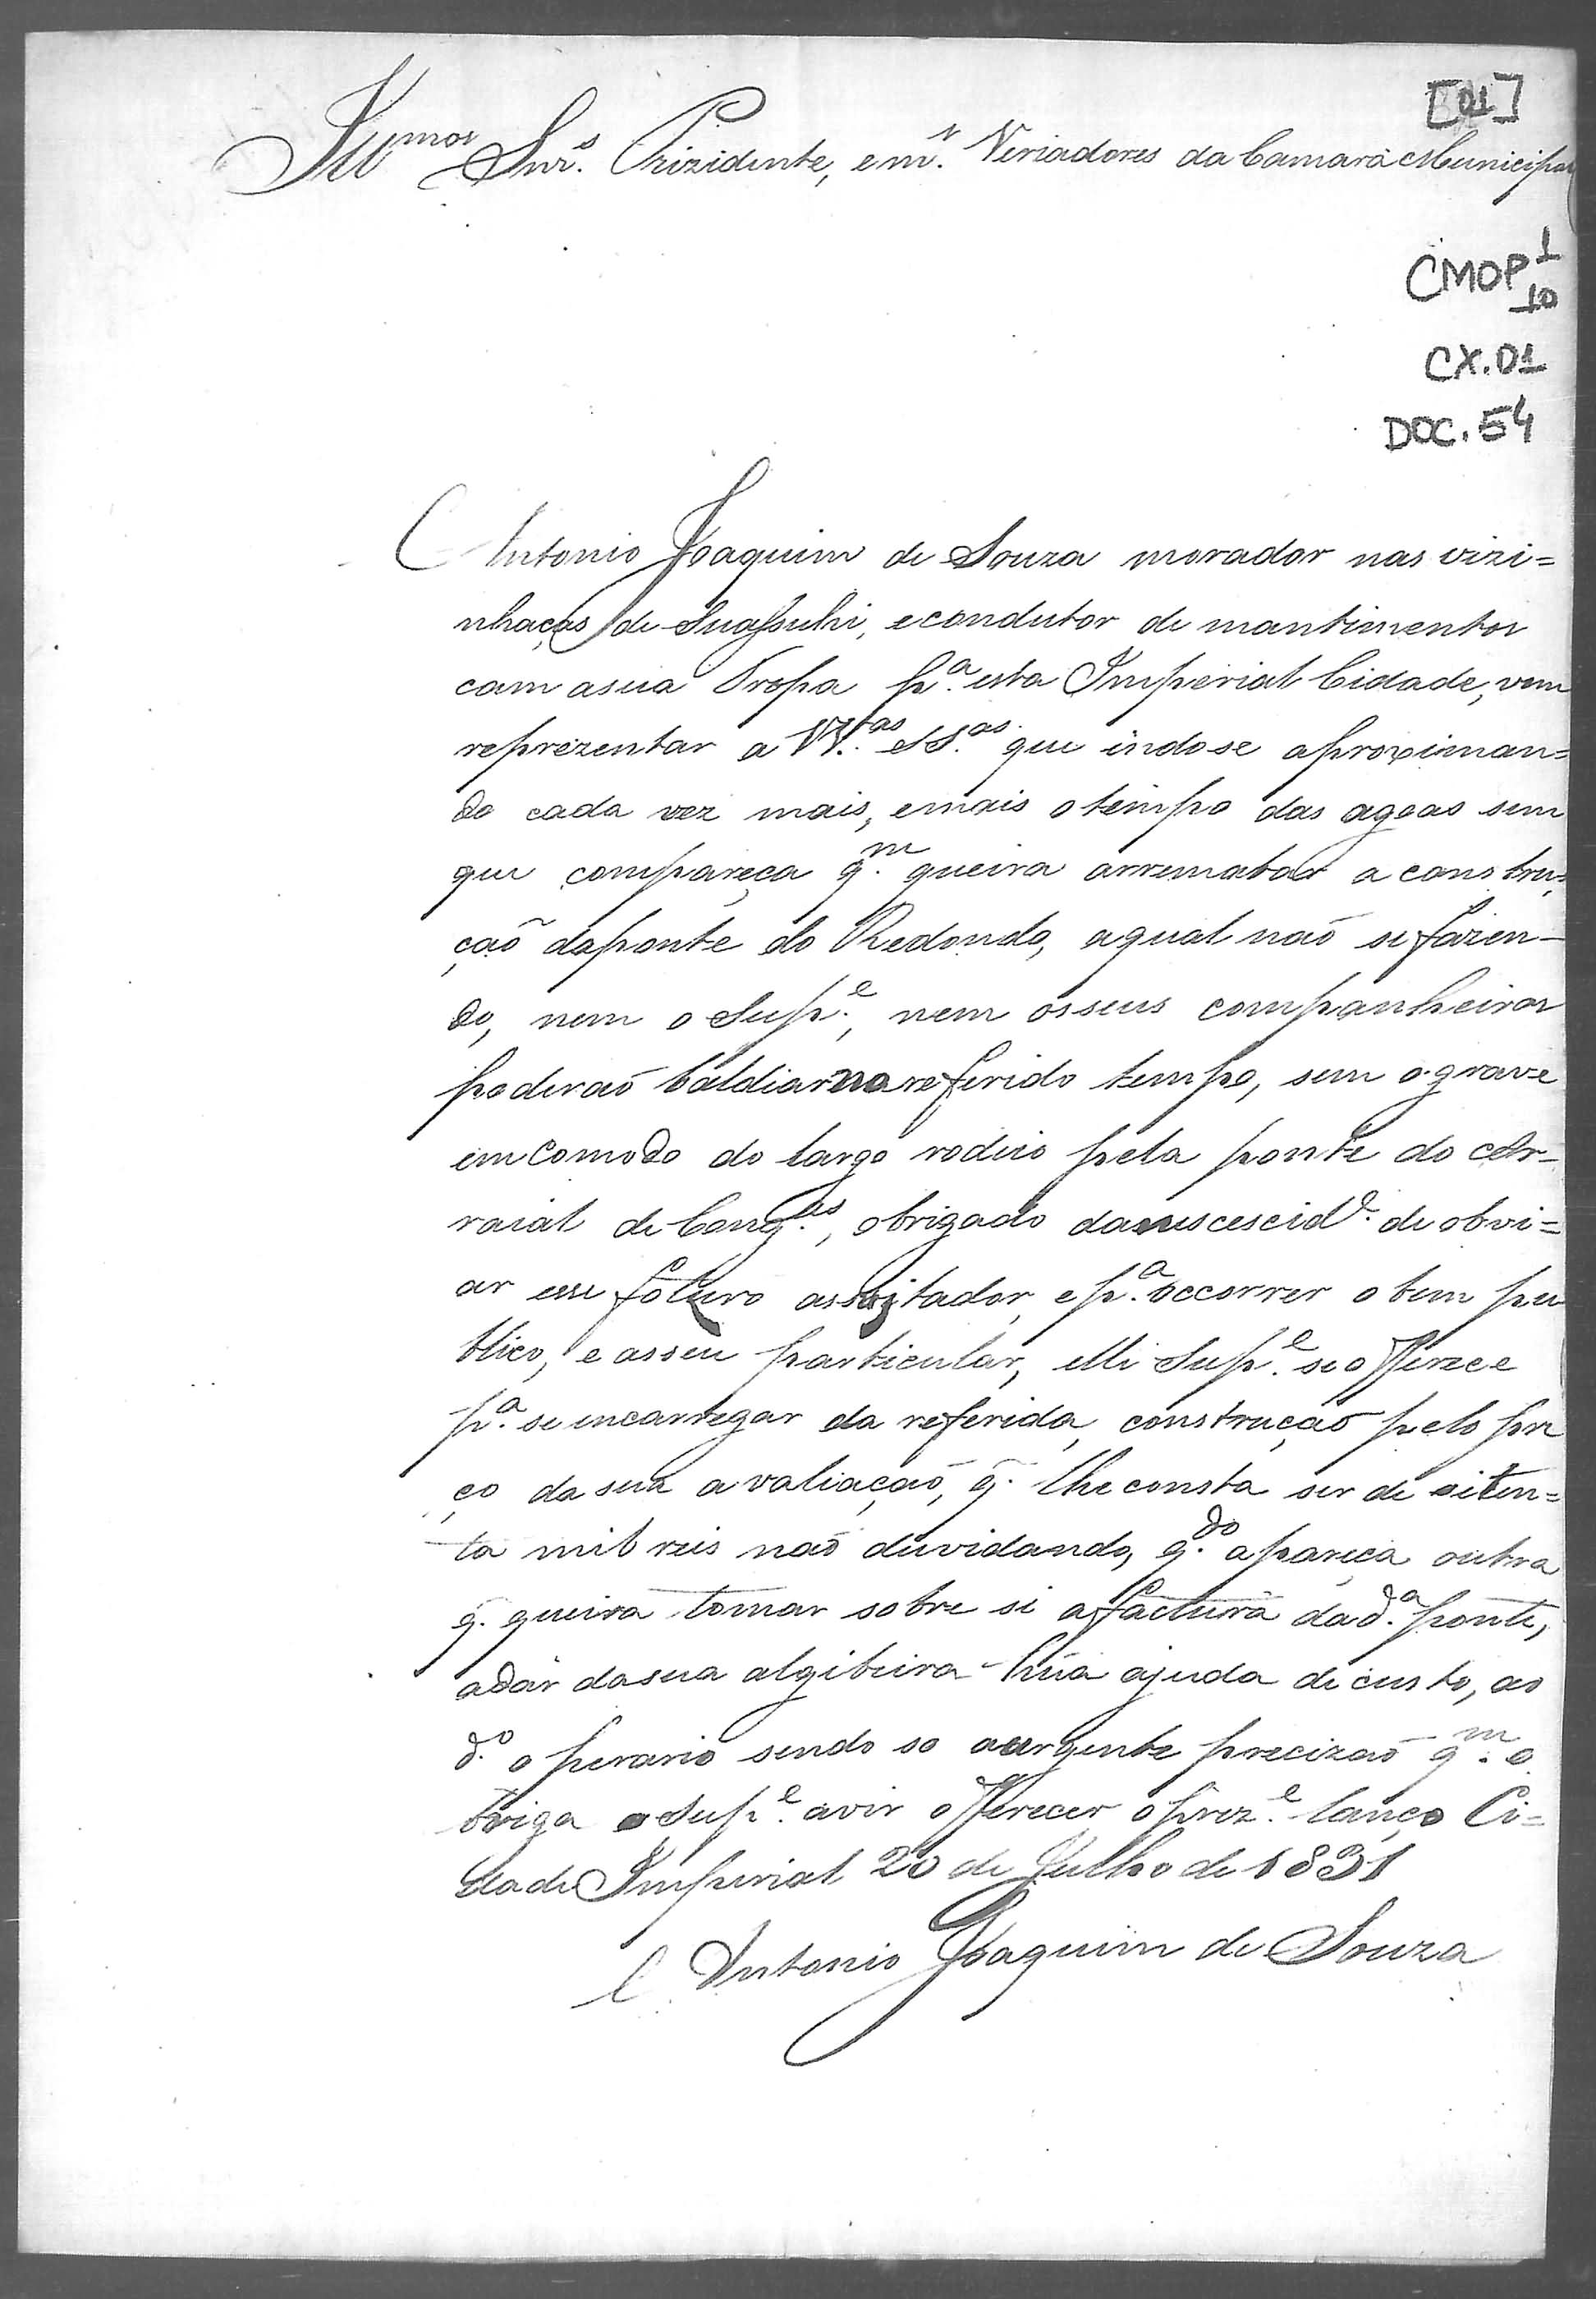 [01]
Illmos Snrs. Prizidente, e mr. Veriadores da Camara Municipal
CMOP 1
10
CX.01
DOC. 54
Antonio Joaquim de Souza morador nas vizi=
nhaças de Suassuhi, e condutor de mantimentos
com asua Tropa pa. esta Imperial Cidade, vem
reprezentar a VV.as SS.as que indose aproximan=
do cada vez mais, emais otempo das agoas sem
que compareça qm. queira arrematar a constru=
çaõ daponte do Redondo, aqual naõ se fazen-
do, nem o Supe., nem osseus companheiros
poderaõ baldiar no referido tempo, sem o grave
emcomodo do largo rodeio pela ponte do Ar-
raial de Congas., obrigado danescescide. de obvi=
ar esse foturo, epa. occorrer o bem pu
blico, e asseu particular, elle Supe. se offerece
pa. se encarregar da referida construçaõ pelo pre
ço da sua avaliaçaõ, q. lhe consta ser de oiten=
ta mil reis naõ duvidando, qdo. apareça outra
q. queira tomar sobre si a factura dada. ponte,
adar dasua algibeira hũa ajuda de custo, ao
do. operario sendo so a urgente precizaõ qm. o
briga o Supe. avir offerecer o preze. lanço Ci=
dade Imperial 20 de Julho de 1831
Antonio Joaquim de Souza